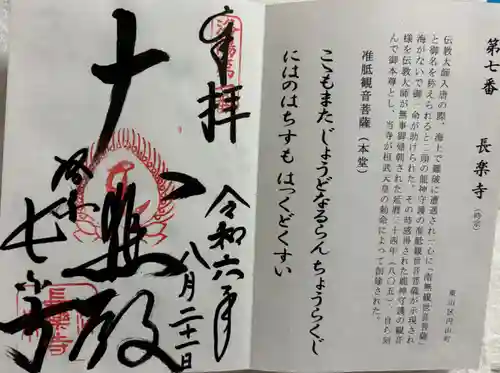 第七番 長楽寺(時宗)
東山区円山町
伝教大師入唐の際、海上で難破に遭遇され一心に「南無観世音菩薩」
と御名を称えられると二頭の龍神守護の准胝観音菩薩が示現され
海がないで御一命が助けられた。その時感得された龍神守護の観音
様を伝教大師が無事御帰朝された延暦二十四年(八〇五)、自ら刻
んで御本尊とし、当寺が桓武天皇の勅命によって創建された。
准胝観音菩薩(本堂)
こゝもまた じょうどなるらん ちょうらくじ
にはのはちすも はつくどくすい
奉拝
令和六年
八月二十一日
大悲殿
洛陽
七番
長楽寺